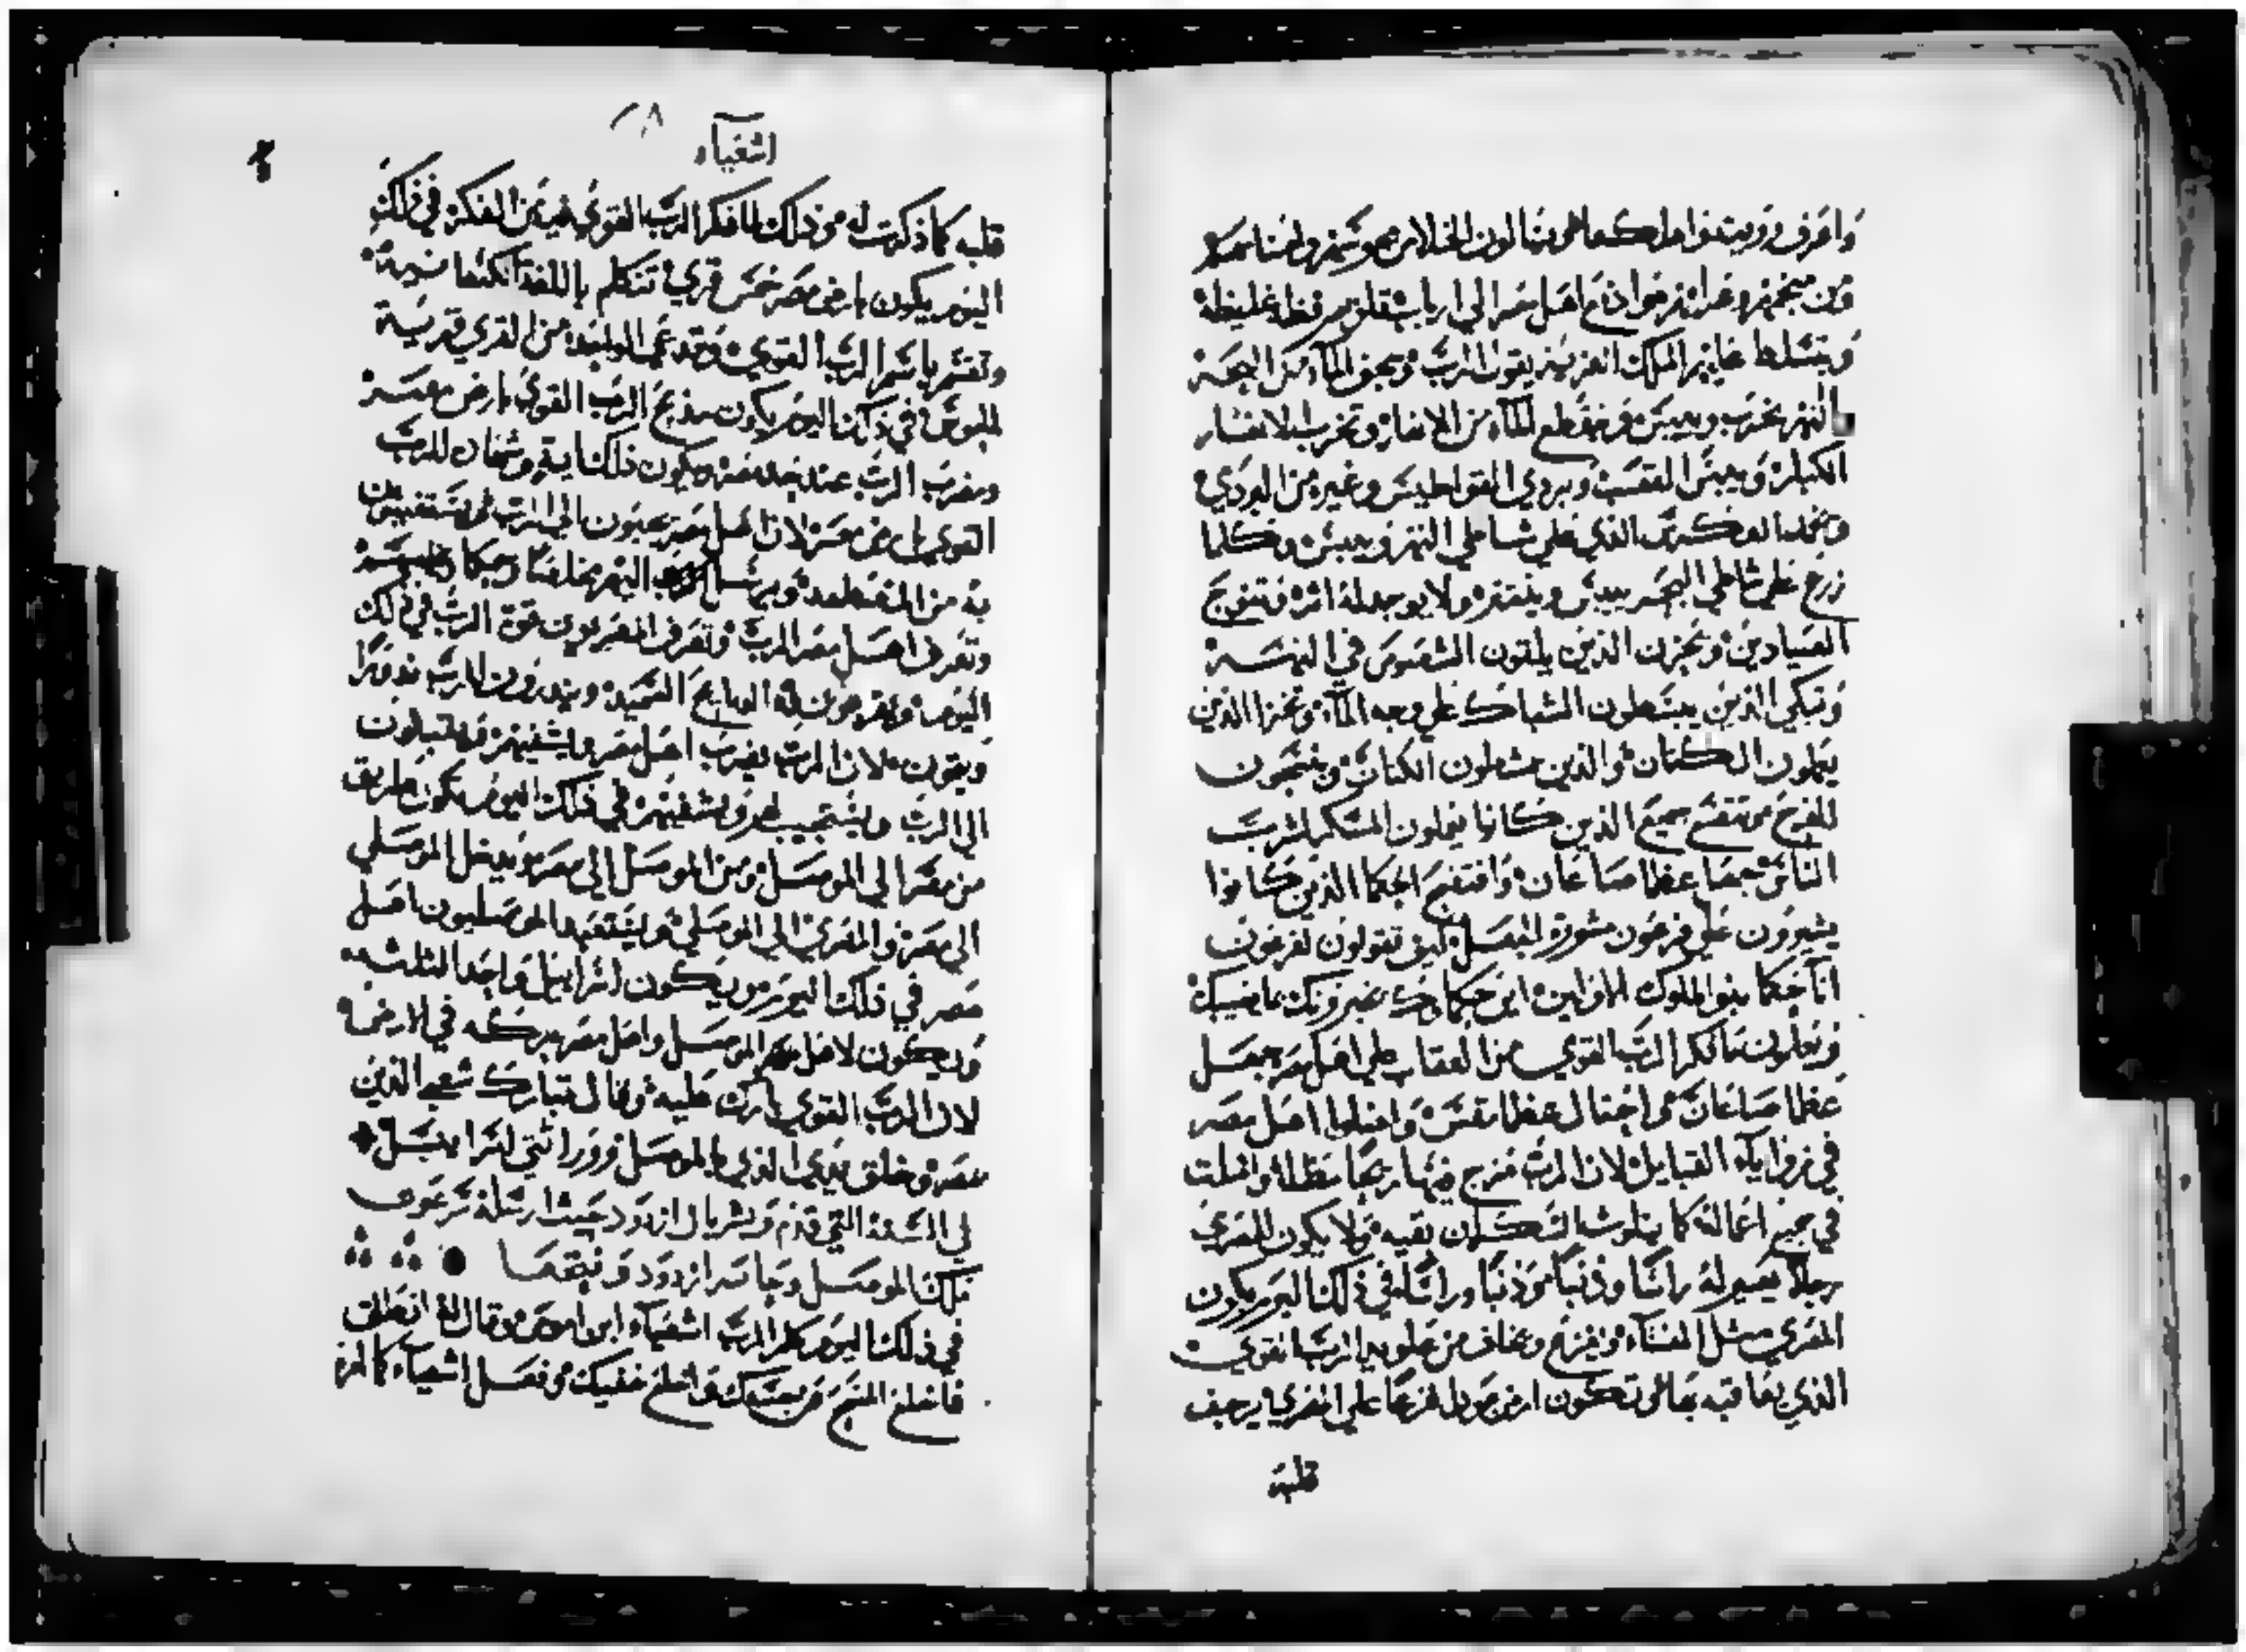 من منجميهم وعرافيهم وادفع اهل مصر الي ارباب قلوبهم فظة غليظة
ويتسلط عليهم الملك العزيز يقول الرب ويجف الماء من البحر
والنهر يخرب وييبس وينقطع الماء من الانهار وتخرب الانهار
الكبار وييبس القصب وبردي الغواطيس وغيره من البردي
الذي علي شاطي النهر وييبس وكلما
زرع علي شاطي البحر ييبس وينتثر ولا يوجد له اثر وتنوح
الصيادين وتحزن الذين يلقون الشصوص في النهر
وتبكي الذين يبسطون الشباك علي وجه الماء وتخزا الذين
يعملون الكتان والذين يشعلون الكتان وينسجون
للفرح وتتضع جميع الذين كانوا يعملون المسكر لشرب
الناس جمعا عظما صاغان وافتضح الحكما الذين كانوا
يشيرون علي فرعون مشورة الجهل كيف تقولون لفرعون
انا حكما بنو الملوك الاولين اين حكماوك يخبرونك ما يصيبك
ويعلمون ما فكر الرب القوي من العقاب علي اهل مصر جهل
عظما صاغان واختال عظما نفس واضلوا اهل مصر
في زواياه القبايل لان الرب مزج فيها ريحا مضلا واضلت
في جميع اعماله كما يتلوث السكران بقيه ولا يكون للمصري
رجلا يصير له راسا وذنبا وذنبا وراسا في ذلك اليوم يكون
المصري مثل النساء ويفزع ويخاف من علو يد الرب القوي
الذي يعاقبه بها وتكون ارض يهودا فزعا علي المصري يرجف
قلبه
اشعياء
٢٨
قلبه كما ذكرت له من ذلك لما فكر الرب القوي فيه من الفكر في ذلك
اليوم يكون بارض مصر خمس قري تتكلم باللغة الكنعانية
وتقسم باسم الرب القوي وتدعي الواحدة من القري قرية
في ذلك اليوم يكون مذبح الرب القوي بارض مصر
ومضرب الرب عند حده ويكون ذلك اية وشهادة للرب
القوي بارض مصر لان اهل مصر يصيحون الي الرب
وتعرف اهل مصر الرب وتعرف المصريون قوة الرب في ذلك
اليوم ويقربون له الذبايح السميد وينذرون للرب نذورا
ويوفون لان الرب يضرب اهل مصر ويشفيهم ويقبلون
الي الرب ويستجيب لهم ويشفيهم في ذلك اليوم تكون طريق
من مصر الي الموصل ومن الموصل الي مصر ويدخل الموصلي
الي مصر والمصري الي الموصلي ويستعبد الموصليون اهل
مصر في ذلك اليوم ويكون اسراييل واحدا لثلثه
ويكون لاهل الموصل واهل مصر بركه في الارض
لان الرب القوي بارك عليه وقال تبارك شعبي الذي
بمصر وخلق يدي الذي بالموصل ووراثتي اسراييل
في السنة التي قدم ازدود حيث ارسله سرغون
ملك الموصل وحاصر ازدود وفتحها
في ذلك اليوم كلم الرب اشعياء ابن اموص وقال له انطلق
فاخلع المسح من حقوك واخلع خفيك وفعل اشعياء كما امر